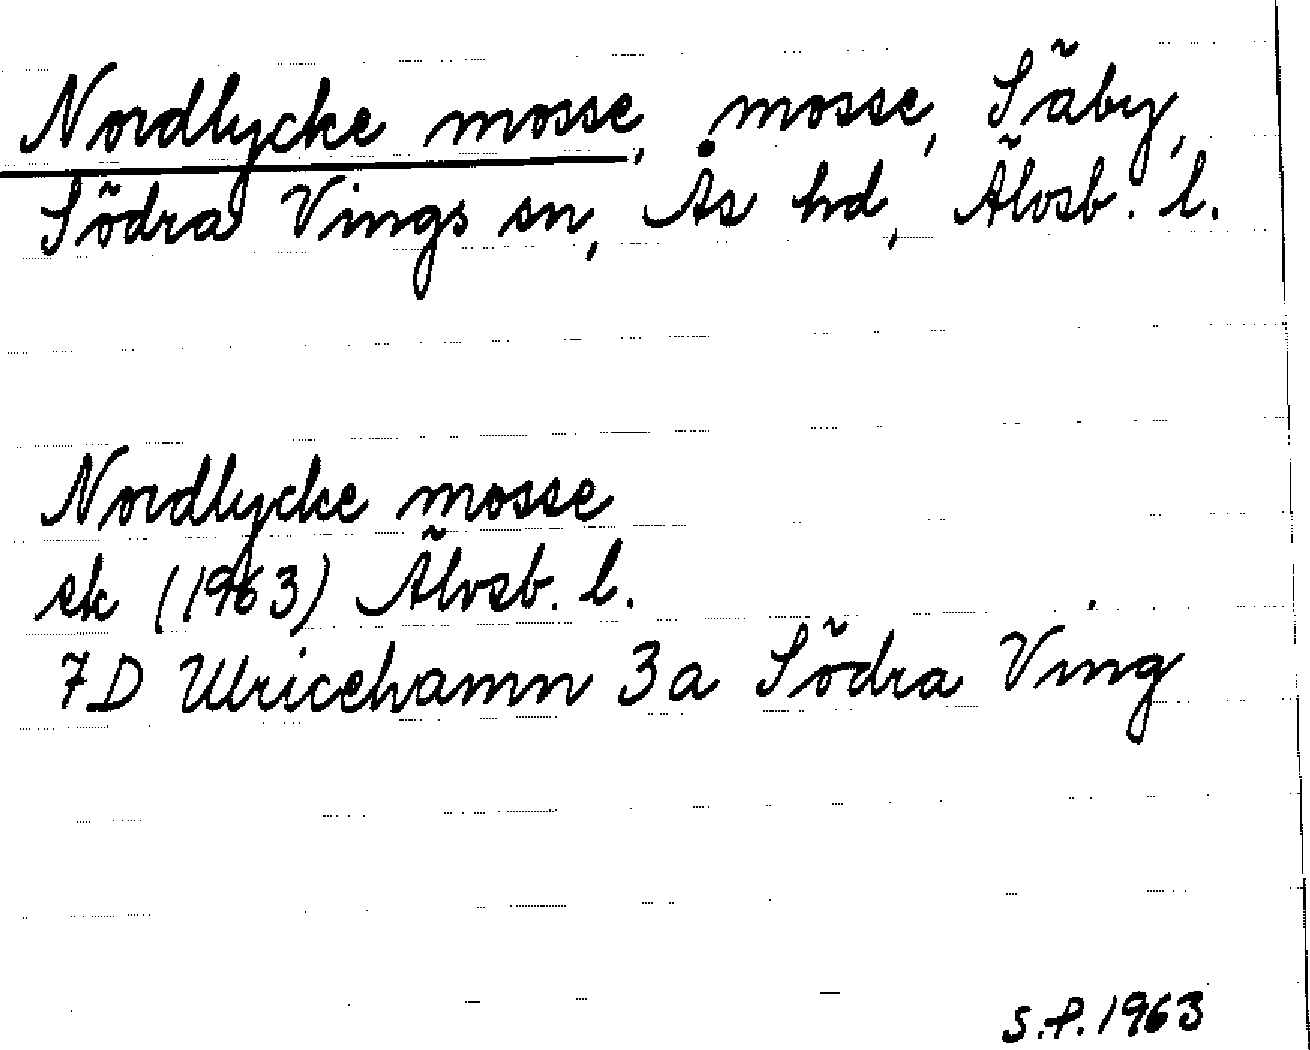 Nordlycke mosse, mosse, Säby,
Södra Vings sn, Ås hd, Älvsb. l.
Nordlycke mosse
ek (1963) Älvsb. l.
7D Ulricehamn 3a Södra Ving
S.P. 1963